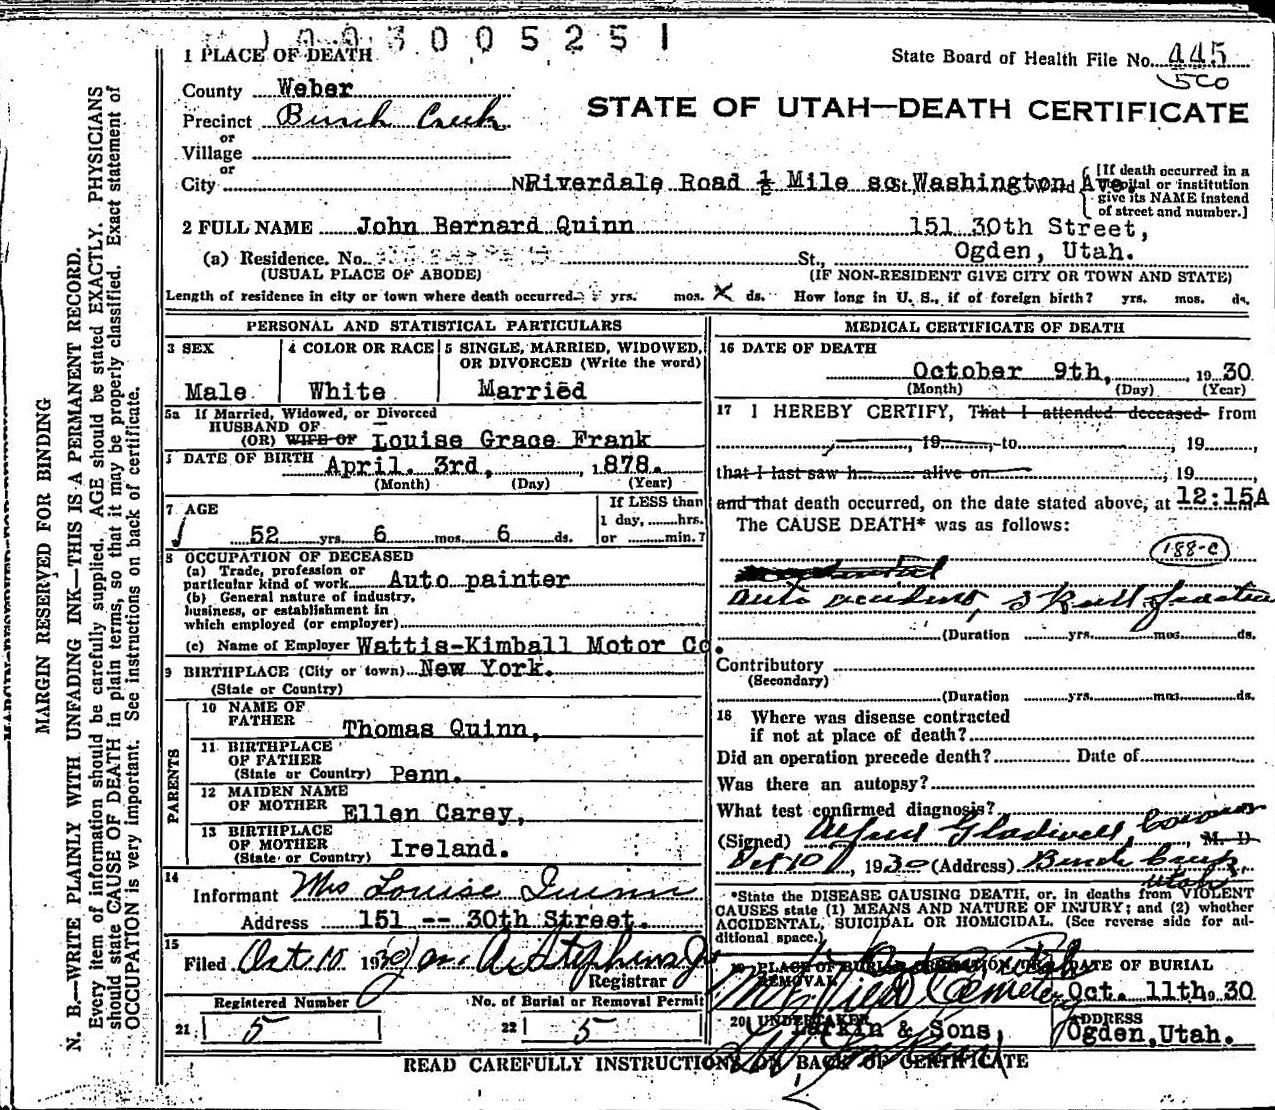 1003005251
State Board of Health File No. 445
500
1 PLACE OF DEATH
County Weber
STATE OF UTAH—DEATH CERTIFICATE
Precinct Burch Creek
or
Village
or
City No Riverdale Road ½ Mile so St, Washington Ave.
[If death occurred in a
hospital or institution
give its NAME instead
of street and number.]
2 FULL NAME John Bernard Quinn 151 30th Street,
(a) Residence. No. St., Ogden, Utah.
(USUAL PLACE OF ABODE) (IF NON-RESIDENT GIVE CITY OR TOWN AND STATE)
Length of residence in city or town where death occurred yrs. mos. X ds. How long in U. S., if of foreign birth? yrs. mos. ds.
PERSONAL AND STATISTICAL PARTICULARS
3 SEX 4 COLOR OR RACE 5 SINGLE, MARRIED, WIDOWED,
OR DIVORCED (Write the word)
Male White Married
5a If Married, Widowed, or Divorced
HUSBAND OF
(OR) WIFE OF Louise Grace Frank
DATE OF BIRTH April. 3rd, 1878.
(Month) (Day) (Year)
7 AGE If LESS than
1 day, hrs.
52 yrs. 6 mos. 6 ds. or min.?
8 OCCUPATION OF DECEASED
(a) Trade, profession or
particular kind of work Auto painter
(b) General nature of industry,
business, or establishment in
which employed (or employer)
(c) Name of Employer Wattis-Kimball Motor Co.
9 BIRTHPLACE (City or town) New York.
(State or Country)
PARENTS
10 NAME OF
FATHER Thomas Quinn,
11 BIRTHPLACE
OF FATHER
(State or Country) Penn.
12 MAIDEN NAME
OF MOTHER Ellen Carey,
13 BIRTHPLACE
OF MOTHER
(State or Country) Ireland.
14
Informant Mrs Louise Quinn
Address 151 -- 30th Street.
15
Filed Oct 10 1930 A. Stephens Jr
Registrar
Registered Number No. of Burial or Removal Permit
21 5 22 5
MEDICAL CERTIFICATE OF DEATH
16 DATE OF DEATH
October 9th, 1930
(Month) (Day) (Year)
17 I HEREBY CERTIFY, That I attended deceased from
, 19 , to 19 ,
that I last saw h alive on , 19
and that death occurred, on the date stated above, at 12:15A
The CAUSE DEATH* was as follows:
188-c
Auto accident, Skull fracture
(Duration yrs. mos. ds.
Contributory
(Secondary)
(Duration yrs. mos. ds.
18 Where was disease contracted
if not at place of death?
Did an operation precede death? Date of
Was there an autopsy?
What test confirmed diagnosis?
(Signed) Alfred Gladwell, Coroner M. D.
Oct 10, 1930 (Address) Burch Creek,
Utah
*State the DISEASE CAUSING DEATH, or, in deaths from VIOLENT
CAUSES state (1) MEANS AND NATURE OF INJURY; and (2) whether
ACCIDENTAL, SUICIDAL OR HOMICIDAL. (See reverse side for ad-
ditional space.)
19 PLACE OF BURIAL OR REMOVAL Ogden Utah DATE OF BURIAL
Cemetery Oct. 11th. 30
20 UNDERTAKER ADDRESS
Larkin & Sons, Ogden, Utah.
READ CAREFULLY INSTRUCTIONS ON BACK OF CERTIFICATE
MARGIN RESERVED FOR BINDING
N. B.—WRITE PLAINLY WITH UNFADING INK—THIS IS A PERMANENT RECORD.
Every item of information should be carefully supplied. AGE should be stated EXACTLY. PHYSICIANS
should state CAUSE OF DEATH in plain terms, so that it may be properly classified. Exact statement of
OCCUPATION is very important. See instructions on back of certificate.